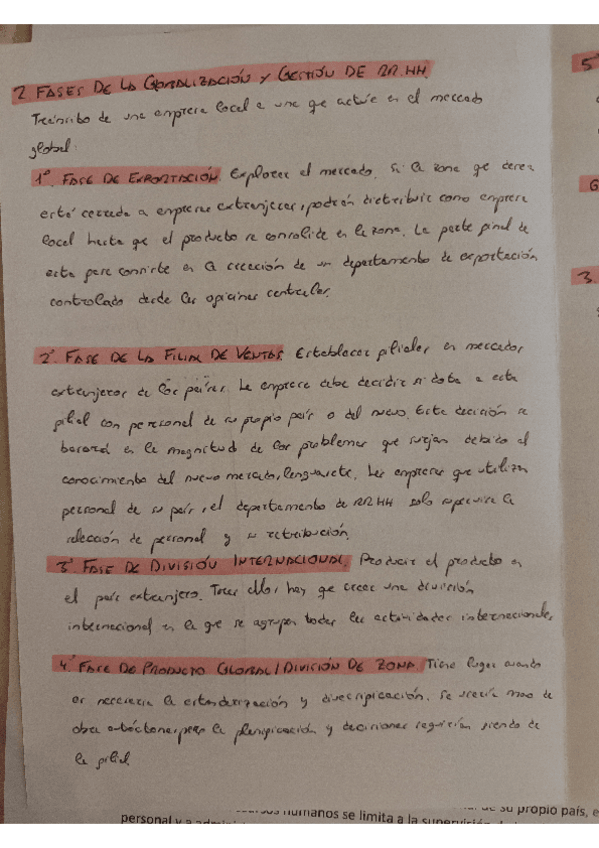 2. FASES DE LA GLOBALIZACIÓN Y GESTIÓN DE RR.HH.
Tránsito de una empresa local a una que actúe en el mercado
global.
1º. FASE DE EXPORTACIÓN. Explorar el mercado. Si la zona que desea
está cerrada a empresas extranjeras, podrán distribuir como empresa
local hasta que el producto se consolide en la zona. La parte final de
esta fase consiste en la creación de un departamento de exportación
controlado desde las oficinas centrales.
2º FASE DE LA FILIAL DE VENTAS. Establecer filiales en mercados
extranjeros de los países. La empresa debe decidir si dota a esta
filial con personal de su propio país o del nuevo. Esta decisión se
basará en la magnitud de los problemas que surjan debido al
conocimiento del nuevo mercado, lengua, etc. Las empresas que utilizan
personal de su país, el departamento de RRHH solo supervisa la
selección de personal y su retribución.
3º FASE DE DIVISIÓN INTERNACIONAL. Producir el producto en
el país extranjero. Tras ello, hay que crear una división
internacional en la que se agrupan todas las actividades internacionales.
4º FASE DE PRODUCTO GLOBAL / DIVISIÓN DE ZONA. Tiene lugar cuando
es necesaria la estandarización y diversificación. Se usaría mano de
obra autóctona, pero la planificación y decisiones seguirían siendo de
la filial.
5º
G
3.
su propio país, e
humanos se limita a la supervisión
personal y